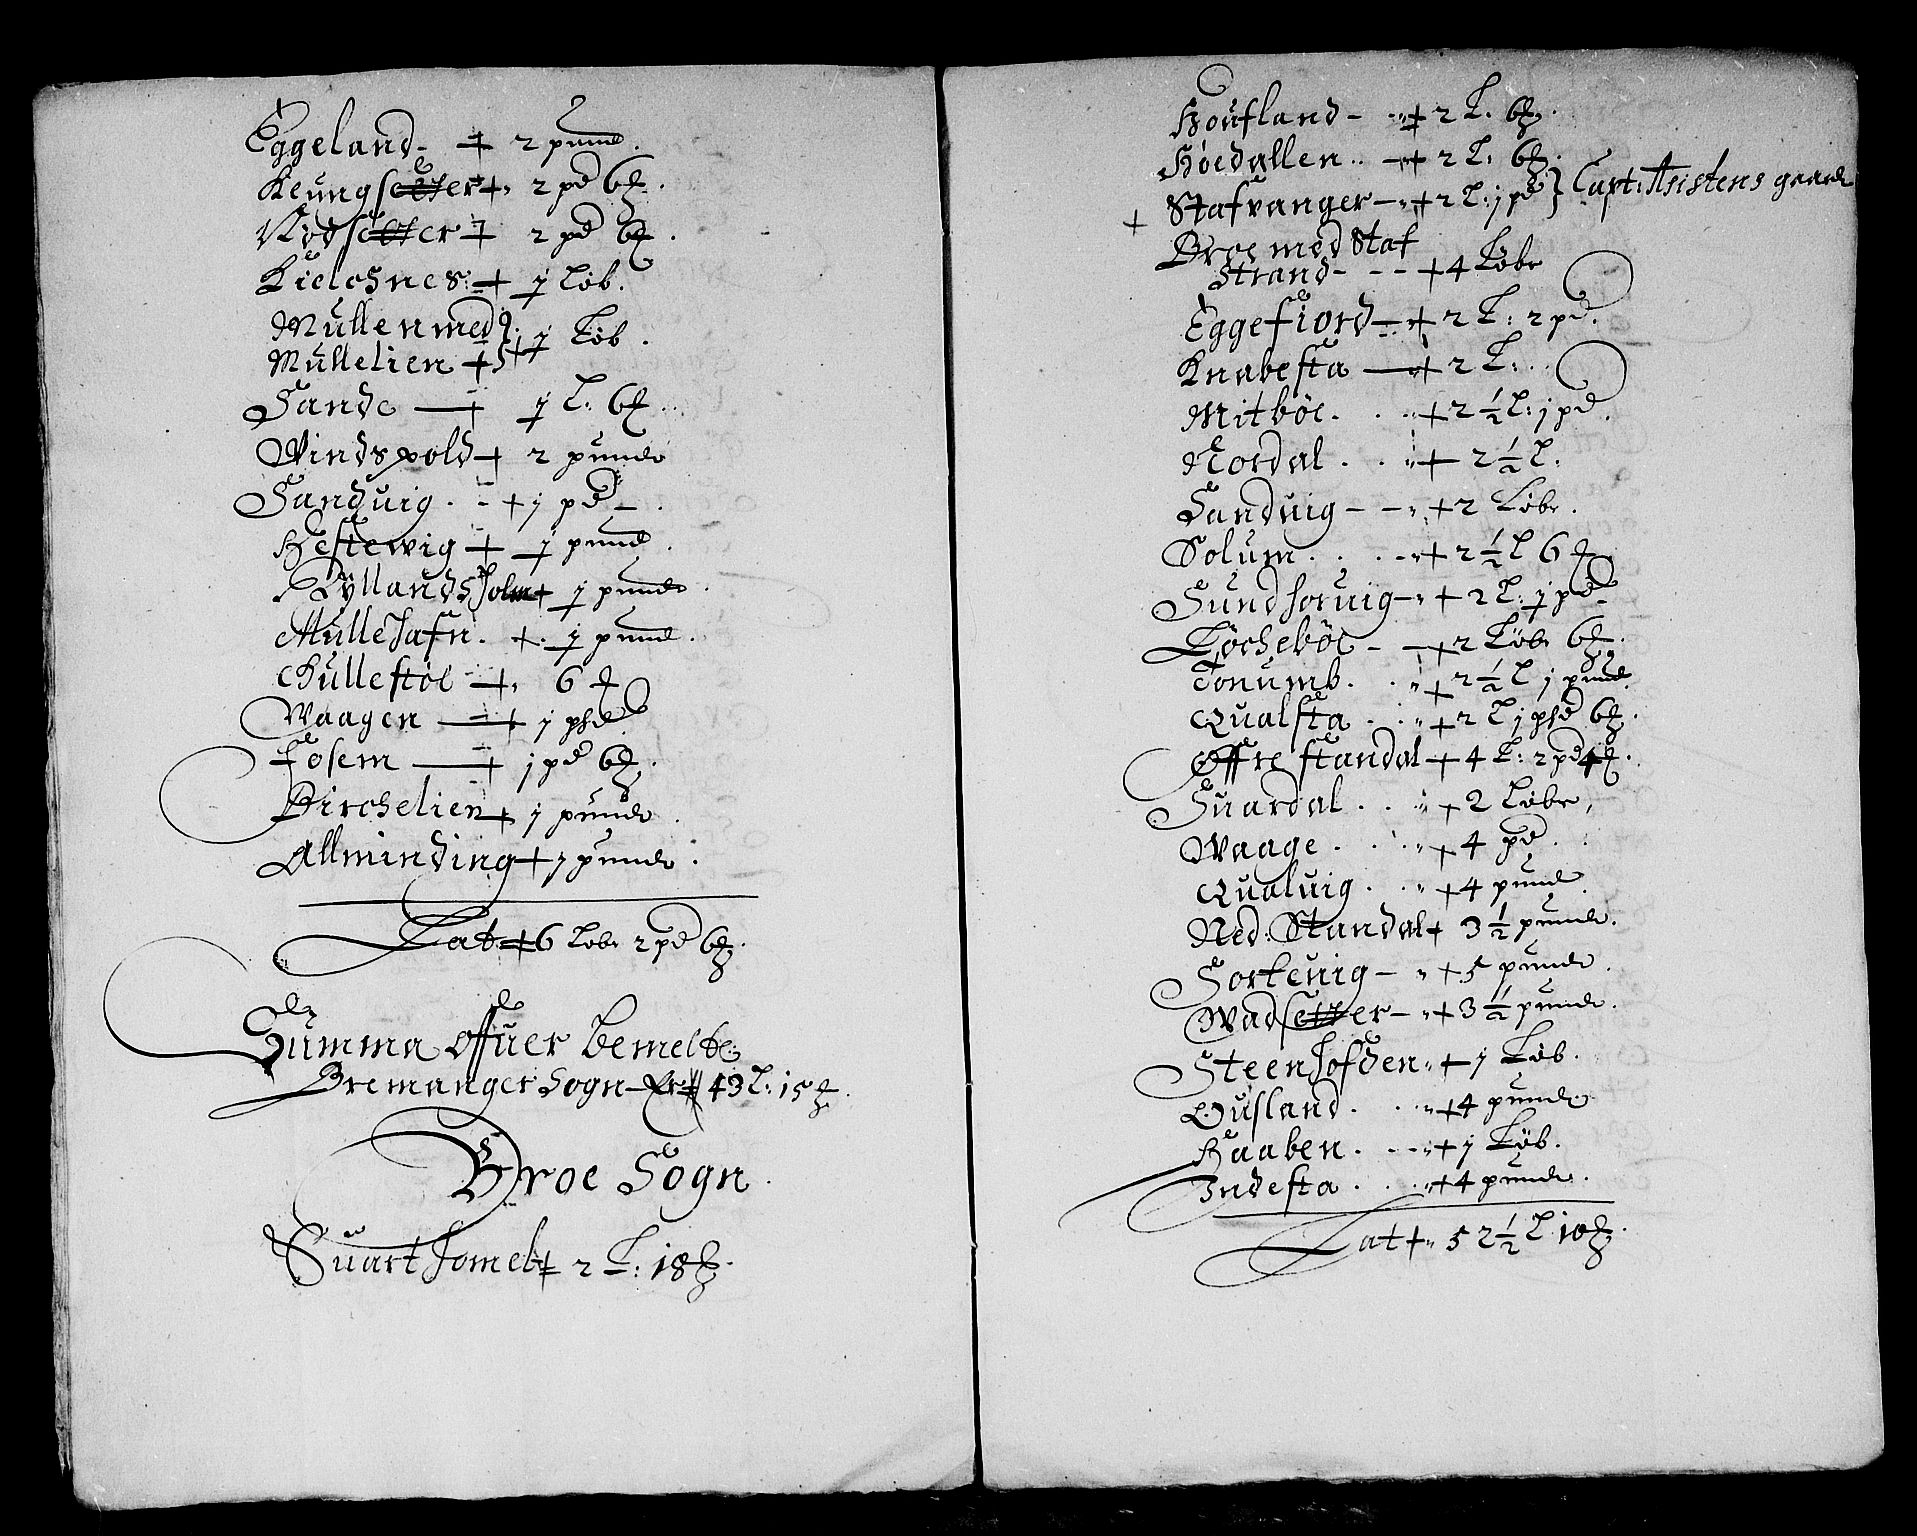 Eggeland - + 2 pund.
Keungsetter + 2 pd 6 ℔.
Nødsetter + 2 pd 6 ℔.
Kielesnes + 1 Løb.
Mullen med
Mullelien + } + 1 Løb.
Sande — + 1 L: 6 ℔.
Vindspold + 2 punde
Sanduig. - + 1 pd.
Hestewig + 1 pund.
Ryllandsholm + 1 punde.
Mullehafn. + 1 pund.
Kullestøl — + 6 ℔
Waagen — + 1 phd
Fosem — + 1 pd 6 ℔.
Birchelien + 1 punde.
Allminding + 1 punde.
Lat + 6 Løbe 2 pd 6 ℔.
Summa offuer bemelte
Bremanger Sogn Er + 43 L: 15 ℔.
Broe Sogn.
Suarthomel + 2 L: 18 ℔.
Houfland - + 2 L: 6 ℔.
Høedallen.. + 2 L: 6 ℔.
+ Stafvanger — + 2 L: 1 pd } Capt: Asistens gaard
Broe med Staf
Strand - - - + 4 Løbe
Eggefiord — + 2 L: 2 pd.
Knabesta — + 2 L:..
Mitbøe. . . + 2 ½ L: 1 pd.
Nordal. . . + 2 ½ L.
Sanduig - - + 2 Løbe.
Solum. . . - + 2 ½ L 6 ℔
Sundhoruig - + 2 L: 1 pd
Løchebøe - — + 2 Løbe 6 ℔.
Tonumb. . . + 2 ½ L 1 pund.
Qualsta . . + 2 L 1 phd 6 ℔.
Øffre standal + 4 L: 2 pd 4 ℔.
Suardal . . . + 2 Løbe,
Waage . . . + 4 pd . .
Qualuig . . + 4 pund.
Ned: Standal + 3 ½ punde.
Sorteuig - + 5 punde.
Wadsetter - + 3 ½ punde.
Steenhofden + 1 Løb.
Ousland . . . + 4 punde.
Haaben . . . + 1 Løb.
Indesta . . . + 4 punde.
Lat + 52 ½ L 10 ℔.